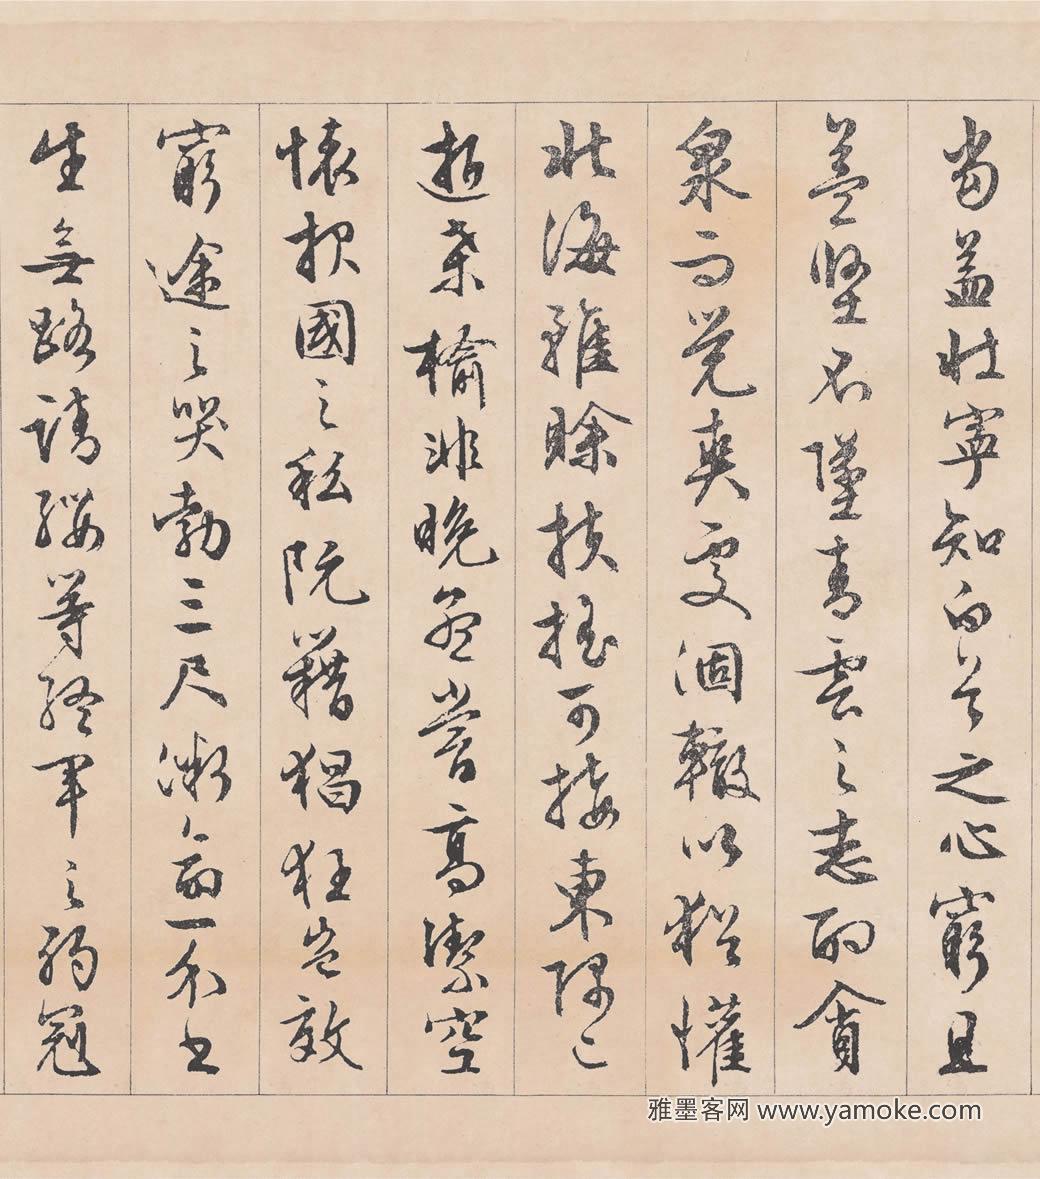 當益壯寧知白首之心窮且
益堅不墜青雲之志酌貪
泉而覺爽處涸轍以猶懽
北海雖賒扶搖可接東隅已
逝桑榆非晚孟嘗高潔空
懷報國之私阮籍猖狂豈效
窮途之哭勃三尺微命一介書
生無路請纓等終軍之弱冠
雅墨客网 www.yamoke.com